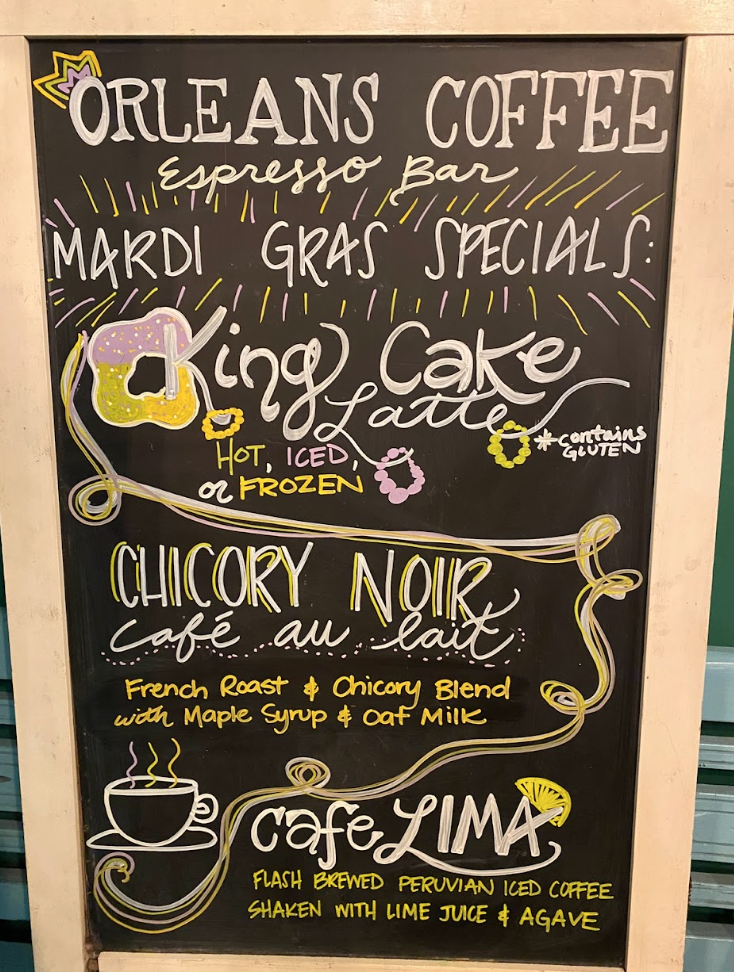 ORLEANS COFFEE
Espresso Bar
MARDI GRAS SPECIALS:
King Cake
Latte
*contains
GLUTEN
HOT, ICED,
or FROZEN
CHICORY NOIR
café au lait
French Roast & Chicory Blend
with Maple Syrup & Oat Milk
cafe LIMA
FLASH BREWED PERUVIAN ICED COFFEE
SHAKEN WITH LIME JUICE & AGAVE